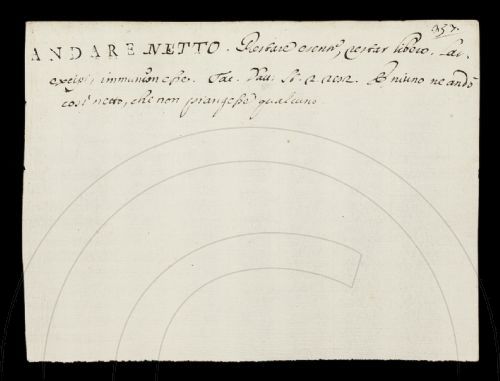 357.
ANDARE NETTO. Restare esente, restar libero. Lat.
excipi, immunem esse. Tac. Dav. St. 2. 292. E niuno ne andò
così netto, che non piangesse qualcuno.